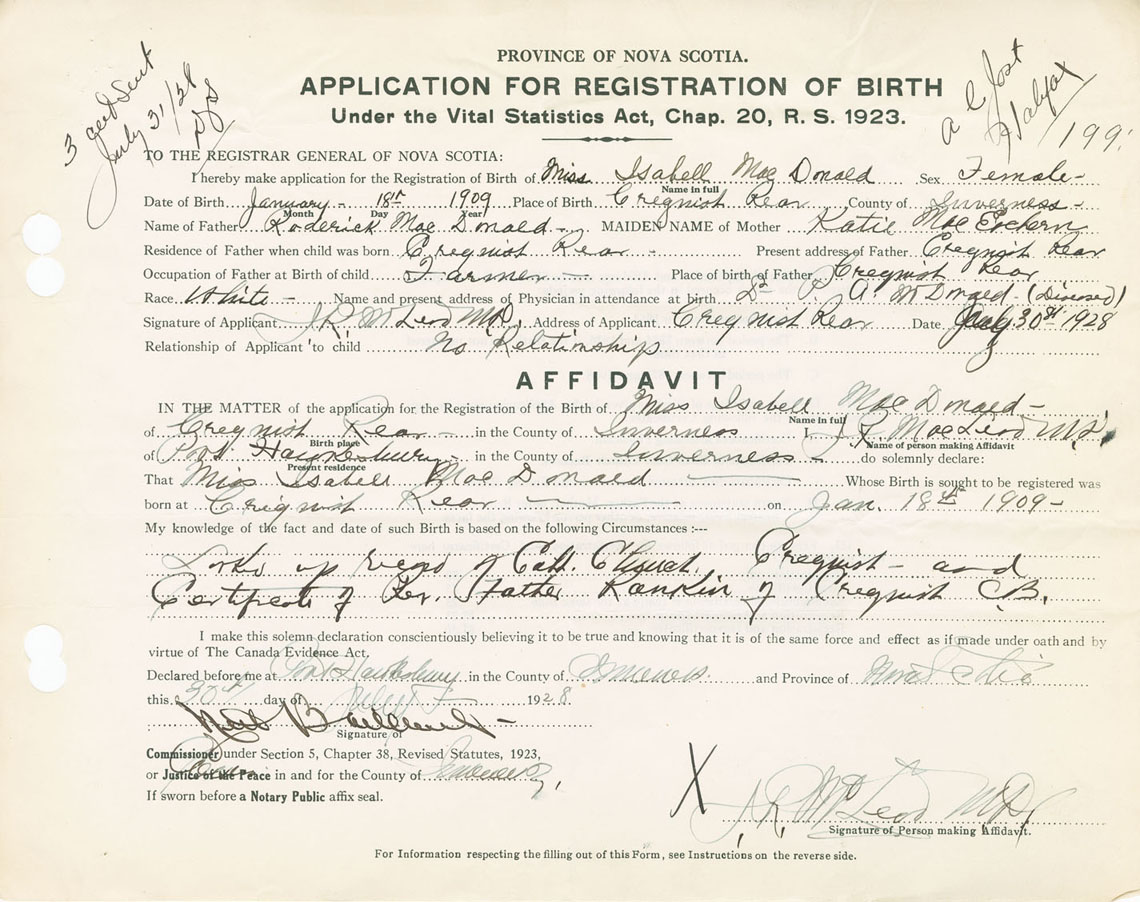 3 cert sent
July 31/28
A C Jost
Halifax
PROVINCE OF NOVA SCOTIA.
APPLICATION FOR REGISTRATION OF BIRTH
Under the Vital Statistics Act, Chap. 20, R. S. 1923.
TO THE REGISTRAR GENERAL OF NOVA SCOTIA:
I hereby make application for the Registration of Birth of Miss Isabell Mac Donald Sex Female-
Name in full
Date of Birth January - 18th 1909 Place of Birth Cregnist Rear County of Inverness-
Month Day Year
Name of Father Roderick Mac Donald- MAIDEN NAME of Mother Katie Mac Eachern
Residence of Father when child was born Cregnist Rear - Present address of Father Cregnist Rear
Occupation of Father at Birth of child Farmer - Place of birth of Father Cregnist Rear
Race White - Name and present address of Physician in attendance at birth Dr P. A. McDonald- (Diseased)
Signature of Applicant J. R. McLeod M.D. Address of Applicant Cregnist Rear Date July 30st 1928
Relationship of Applicant to child No Relationship
AFFIDAVIT
IN THE MATTER of the application for the Registration of the Birth of Miss Isabell Mac Donald-
Name in full
of Cregnist Rear - in the County of Inverness I, J. R. MacLeod M.D.,
Birth place Name of person making Affidavit
of Port Hawkesbury - in the County of Inverness - do solemnly declare:
Present residence
That Miss Isabell Mac Donald Whose Birth is sought to be registered was
born at Crignist Rear on Jan. 18th 1909-
My knowledge of the fact and date of such Birth is based on the following Circumstances :---
Looked up record of Cath. Church, Cregnist - and
Certificate of Rev. Father Rankin of Cregnist C.B.
I make this solemn declaration conscientiously believing it to be true and knowing that it is of the same force and effect as if made under oath and by
virtue of The Canada Evidence Act.
Declared before me at Port Hawkesbury in the County of Inverness and Province of Nova Scotia
this 30th day of July 1928
Signature of
Commissioner under Section 5, Chapter 38, Revised Statutes, 1923,
or Justice of the Peace in and for the County of Inverness,
If sworn before a Notary Public affix seal.
X J. R. McLeod M.D.
Signature of Person making Affidavit.
For Information respecting the filling out of this Form, see Instructions on the reverse side.